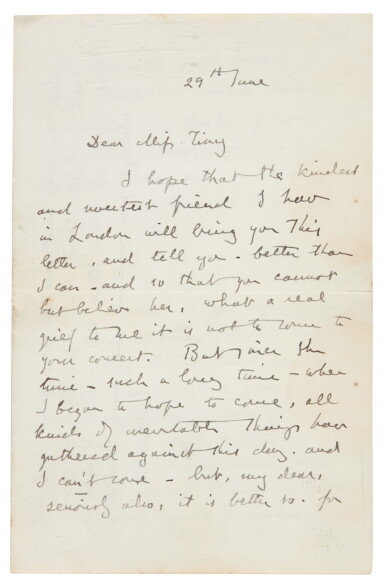 29th June
Dear Miss Ting
I hope that the kindest
and sweetest friend I have
in London will bring you this
letter, and tell you - better than
I can - and so that you cannot
but believe her, what a real
grief to me it is not to come to
your concert. But since the
time - such a long time - when
I began to hope to come, all
kinds of inevitable things have
gathered against this day. and
I can't come - but, my dear,
seriously also, it is better so. for